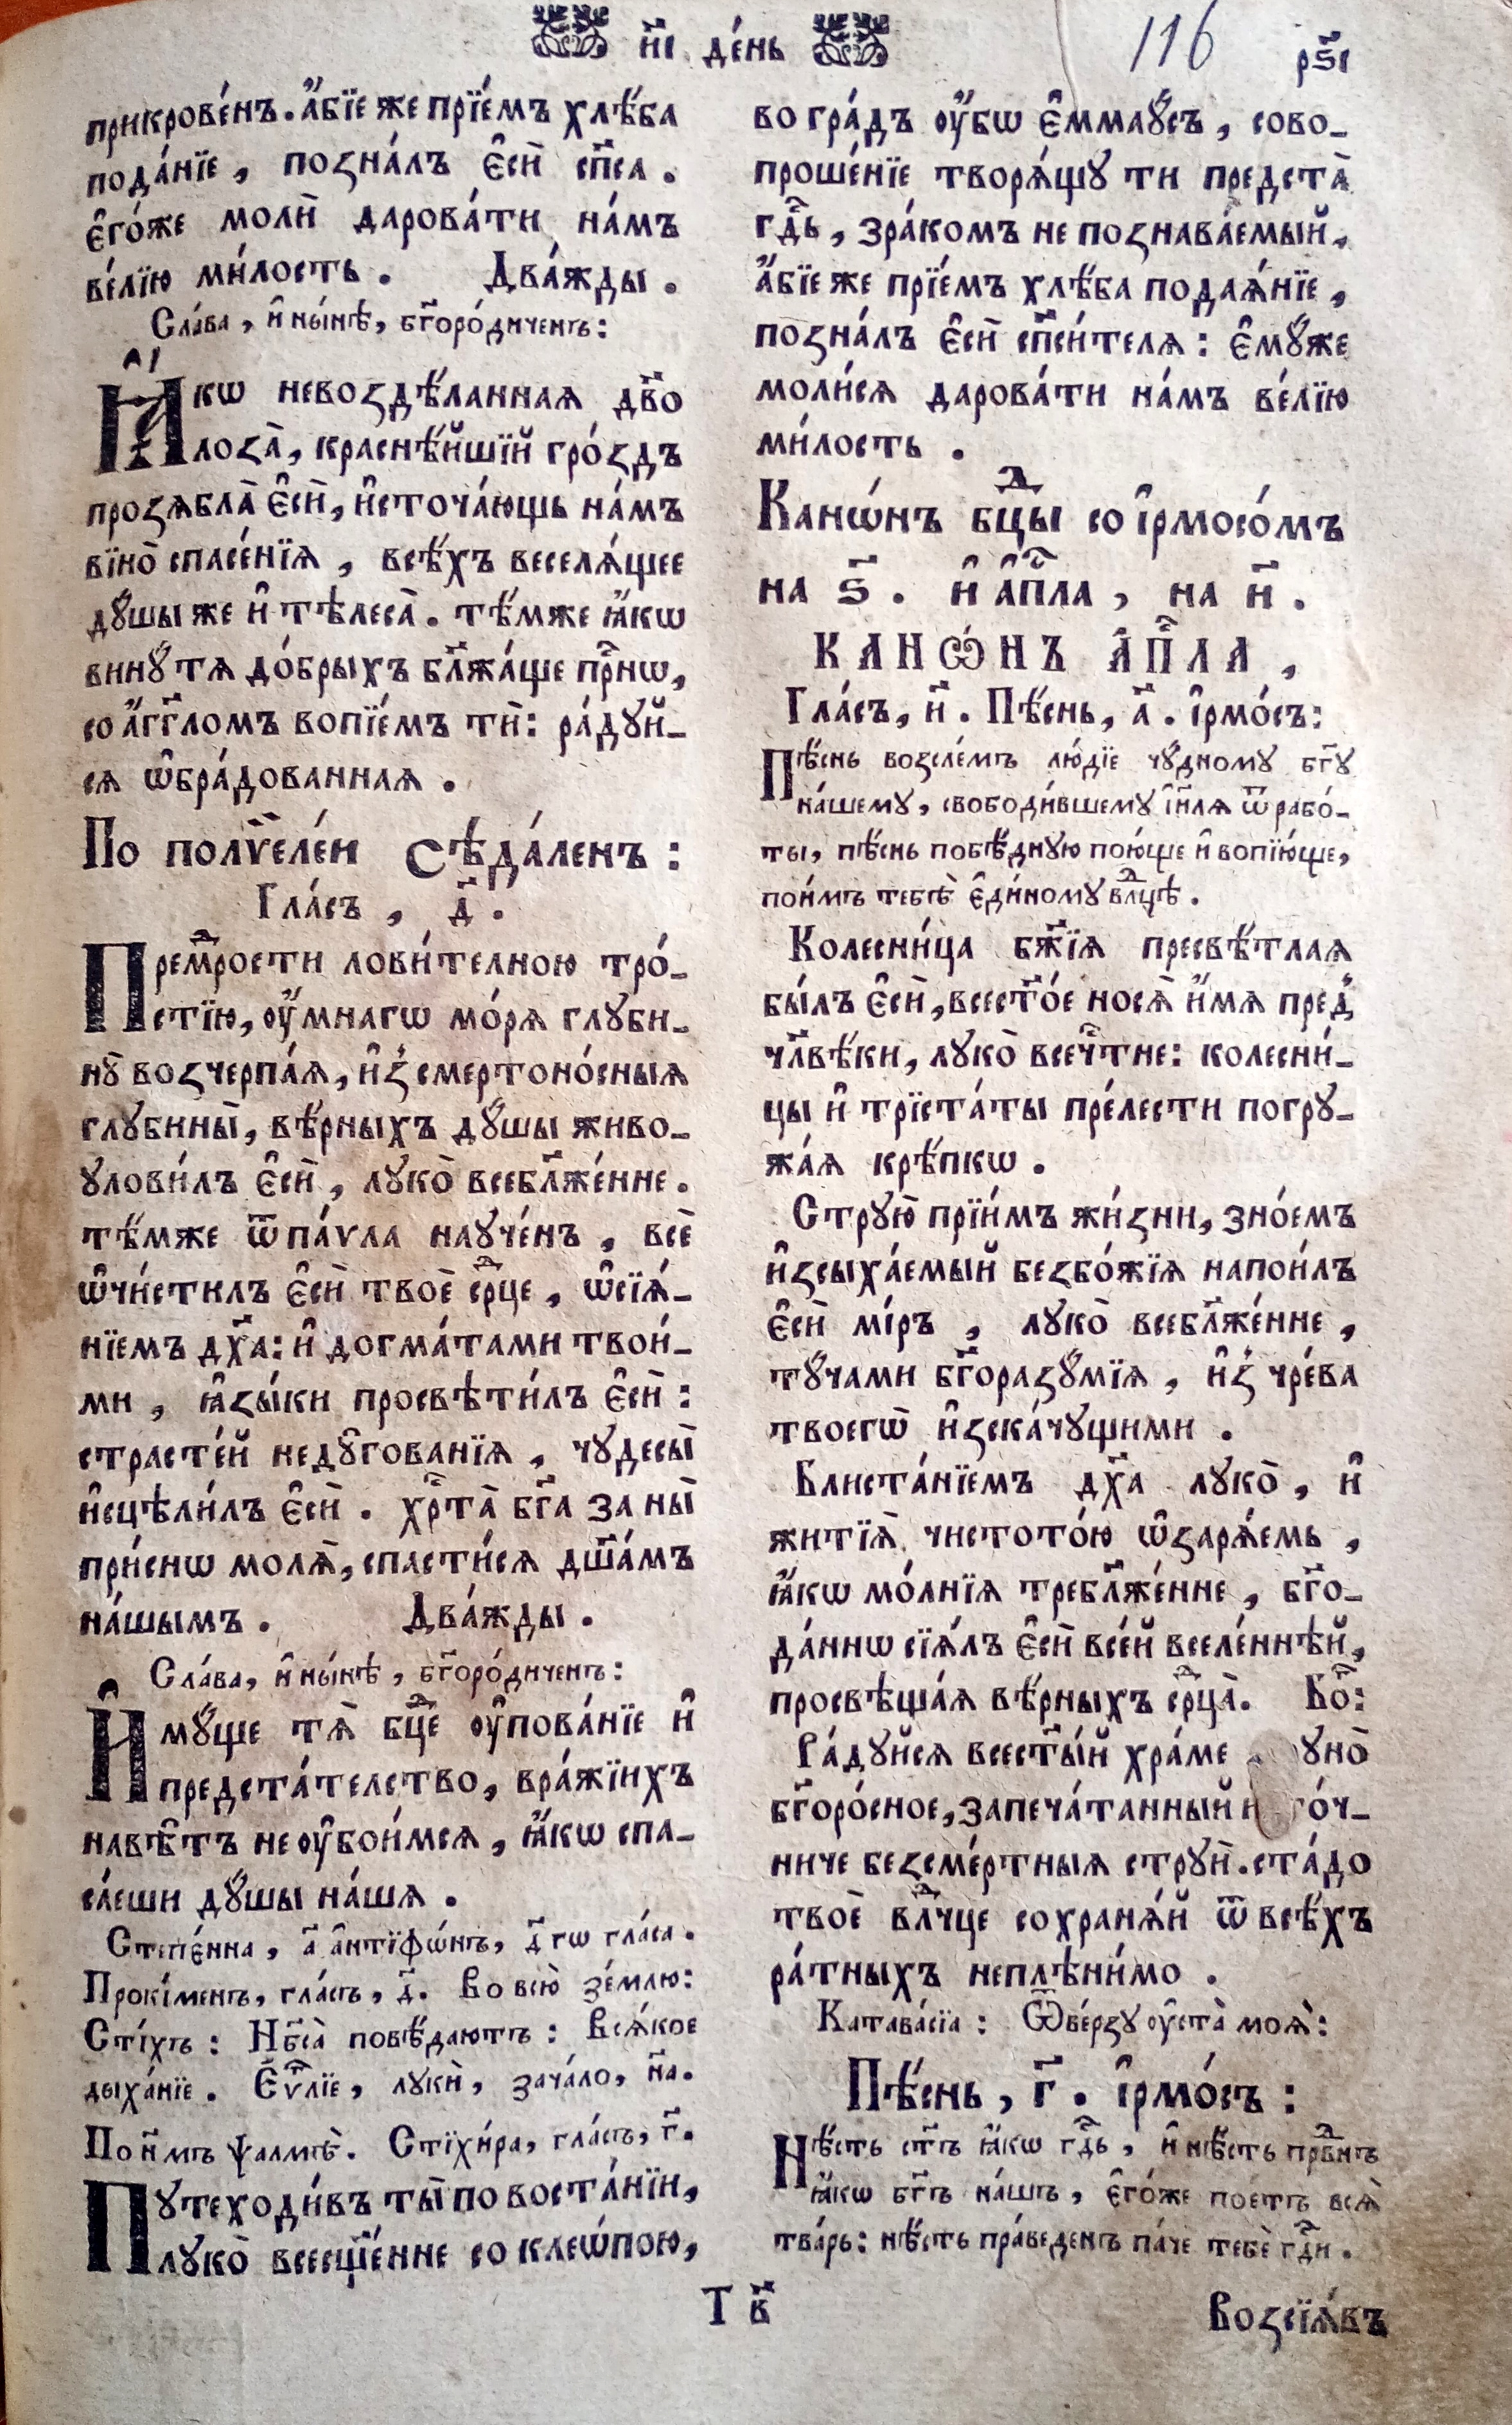 и҃і де́нь
116
рѕ҃і
прикрове́нъ. а҆́бїе же прїе́мъ хлѣ́ба
пода́нїе, позна́лъ є҆сѝ сп҃са.
є҆го́же молѝ дарова́ти на́мъ
ве́лїю ми́лость. Два́жды.
Сла́ва, и҆ ны́нѣ, бг҃оро́диченъ:
Ꙗ҆́кѡ невоздѣ́ланная дв҃о
лоза̀, краснѣ́йшїй гро́здъ
прозѧбла̀ є҆сѝ, и҆сточа́ющь на́мъ
вїно̀ спасе́нїѧ, всѣ́хъ веселѧ́щее
дꙋ́шы же и҆ тѣлеса̀. тѣ́мже ꙗ҆́кѡ
винꙋ́ тѧ до́брыхъ бл҃жа́ще прⷭ҇нѡ,
со а҆́гг҃ломъ вопїе́мъ тѝ: ра́дꙋй-
сѧ ѡ҆бра́дованнаѧ.
По полѷеле́и Сѣда́ленъ:
Гла́съ, д҃.
Премⷣрости лови́телною тро́-
стїю, ᲂу҆́мнагѡ мо́рѧ глꙋби-
нꙋ̀ возчерпа́ѧ, и҆з̾ смертоно́сныѧ
глꙋбины̀, вѣ́рныхъ дꙋ́шы живо-
ꙋлови́лъ є҆сѝ, лꙋко̀ всебл҃же́нне.
тѣ́мже ѿ па́ѵла наꙋче́нъ, всѐ
ѡ҆чи́стилъ є҆сѝ твоѐ срⷣце, ѡ҆сїѧ́-
нїемъ дх҃а: и҆ догма́тами твои́-
ми, ꙗ҆зы́ки просвѣти́лъ є҆сѝ:
страсте́й недꙋ́гованїѧ, чꙋдесы̀
и҆сцѣли́лъ є҆сѝ. хрⷭ҇та̀ бг҃а за ны̀
при́снѡ молѧ̀, спасти́сѧ дш҃а́мъ
на́шымъ. Два́жды.
Сла́ва, и҆ ны́нѣ, бг҃оро́диченъ:
И҆мꙋ́ще тѧ̀ бцⷣе ᲂу҆пова́нїе и҆
предста́телство, вра́жїихъ
навѣ̑тъ не ᲂу҆бои́мсѧ, ꙗ҆́кѡ спа-
са́еши дꙋ́шы на́шѧ.
Степе́нна, а҃ а҆нтїфѡ́нъ, д҃гѡ гла́са.
Прокі́менъ, гла́съ, д҃. Во всю̀ зе́млю:
Сті́хъ: Нб҃са̀ повѣ́даютъ: Всѧ́кое
дыха́нїе. Є҆ѵⷢ҇лїе, лꙋкѝ, зача́ло, н҃а.
По н҃мъ ѱалмѣ̀. Стїхи́ра, гла́съ, г҃.
Пꙋтеходи́въ ты̀ по воста́нїи,
лꙋко̀ всесщ҃е́нне со клеѡ́пою,
во гра́дъ ᲂу҆́бѡ є҆ммаꙋ́съ, сово-
проше́нїе творѧ́щꙋ ти предста̀
гдⷭ҇ь, зра́комъ не познава́емый.
а҆́бїе же прїе́мъ хлѣ́ба подаѧ́нїе,
позна́лъ є҆сѝ сп҃си́телѧ: є҆мꙋ́же
моли́сѧ дарова́ти на́мъ ве́лїю
ми́лость.
Канѡ́нъ бцⷣы со і҆рмосо́мъ
на ѕ҃. и҆ а҆пⷭ҇ла, на и҃.
КАНѠ́НЪ А҆Пⷭ҇ЛА,
Гла́съ, и҃. Пѣ́снь, а҃. і҆рмо́съ:
Пѣ́снь возсле́мъ лю́дїе чꙋ́дномꙋ бг҃ꙋ
на́шемꙋ, свободи́вшемꙋ і҆и҃лѧ ѿ рабо́-
ты, пѣ́снь побѣ́днꙋю пою́ще и҆ вопїю́ще,
пои́мъ тебѣ̀ є҆ди́номꙋ влⷣцѣ.
Колесни́ца бж҃їѧ пресвѣ́тлаѧ
бы́лъ є҆сѝ, всест҃о́е носѧ̀ и҆́мѧ пред̾
чл҃вѣ́ки, лꙋко̀ всечⷭ҇тне: колесни́-
цы и҆ трїста́ты пре́лести погрꙋ-
жа́ѧ крѣ́пкѡ.
Стрꙋю̀ прїи́мъ жи́зни, зно́емъ
и҆зсыха́емый безбо́жїѧ напои́лъ
є҆сѝ мі́ръ, лꙋко̀ всебл҃же́нне,
тꙋ́чами бг҃оразꙋ́мїѧ, и҆з̾ чре́ва
твоегѡ̀ и҆зска́чꙋщими.
Блиста́нїемъ дх҃а лꙋко̀, и҆
житїѧ̀ чистото́ю ѡ҆зарѧ́емь,
ꙗ҆́кѡ мо́лнїѧ требл҃же́нне, бг҃о-
да́ннѡ сїѧ́лъ є҆сѝ все́й вселе́ннѣй,
просвѣща́ѧ вѣ́рныхъ срⷣца̀. Бо҃:
Ра́дꙋйсѧ всест҃ы́й хра́ме ꙋно̀
бг҃оро́сное, запеча́танный и то́ч-
ниче безсме́ртныѧ стрꙋѝ. ста́до
твоѐ влⷣчце сохранѧ́й ѿ всѣ́хъ
ра́тныхъ неплѣни́мо.
Катава́сїа: Ѿве́рзꙋ ᲂу҆ста̀ моѧ̀:
Пѣ́снь, г҃. і҆рмо́съ:
Нѣ́сть ст҃ъ ꙗ҆́кѡ гдⷭ҇ь, и҆ нѣ́сть првⷣнъ
ꙗ҆́кѡ бг҃ъ на́шъ, є҆го́же пое́тъ всѧ̀
тва́рь: нѣ́сть пра́веденъ па́че тебѐ гдⷭ҇и.
Т в҃
Возсїѧ́въ